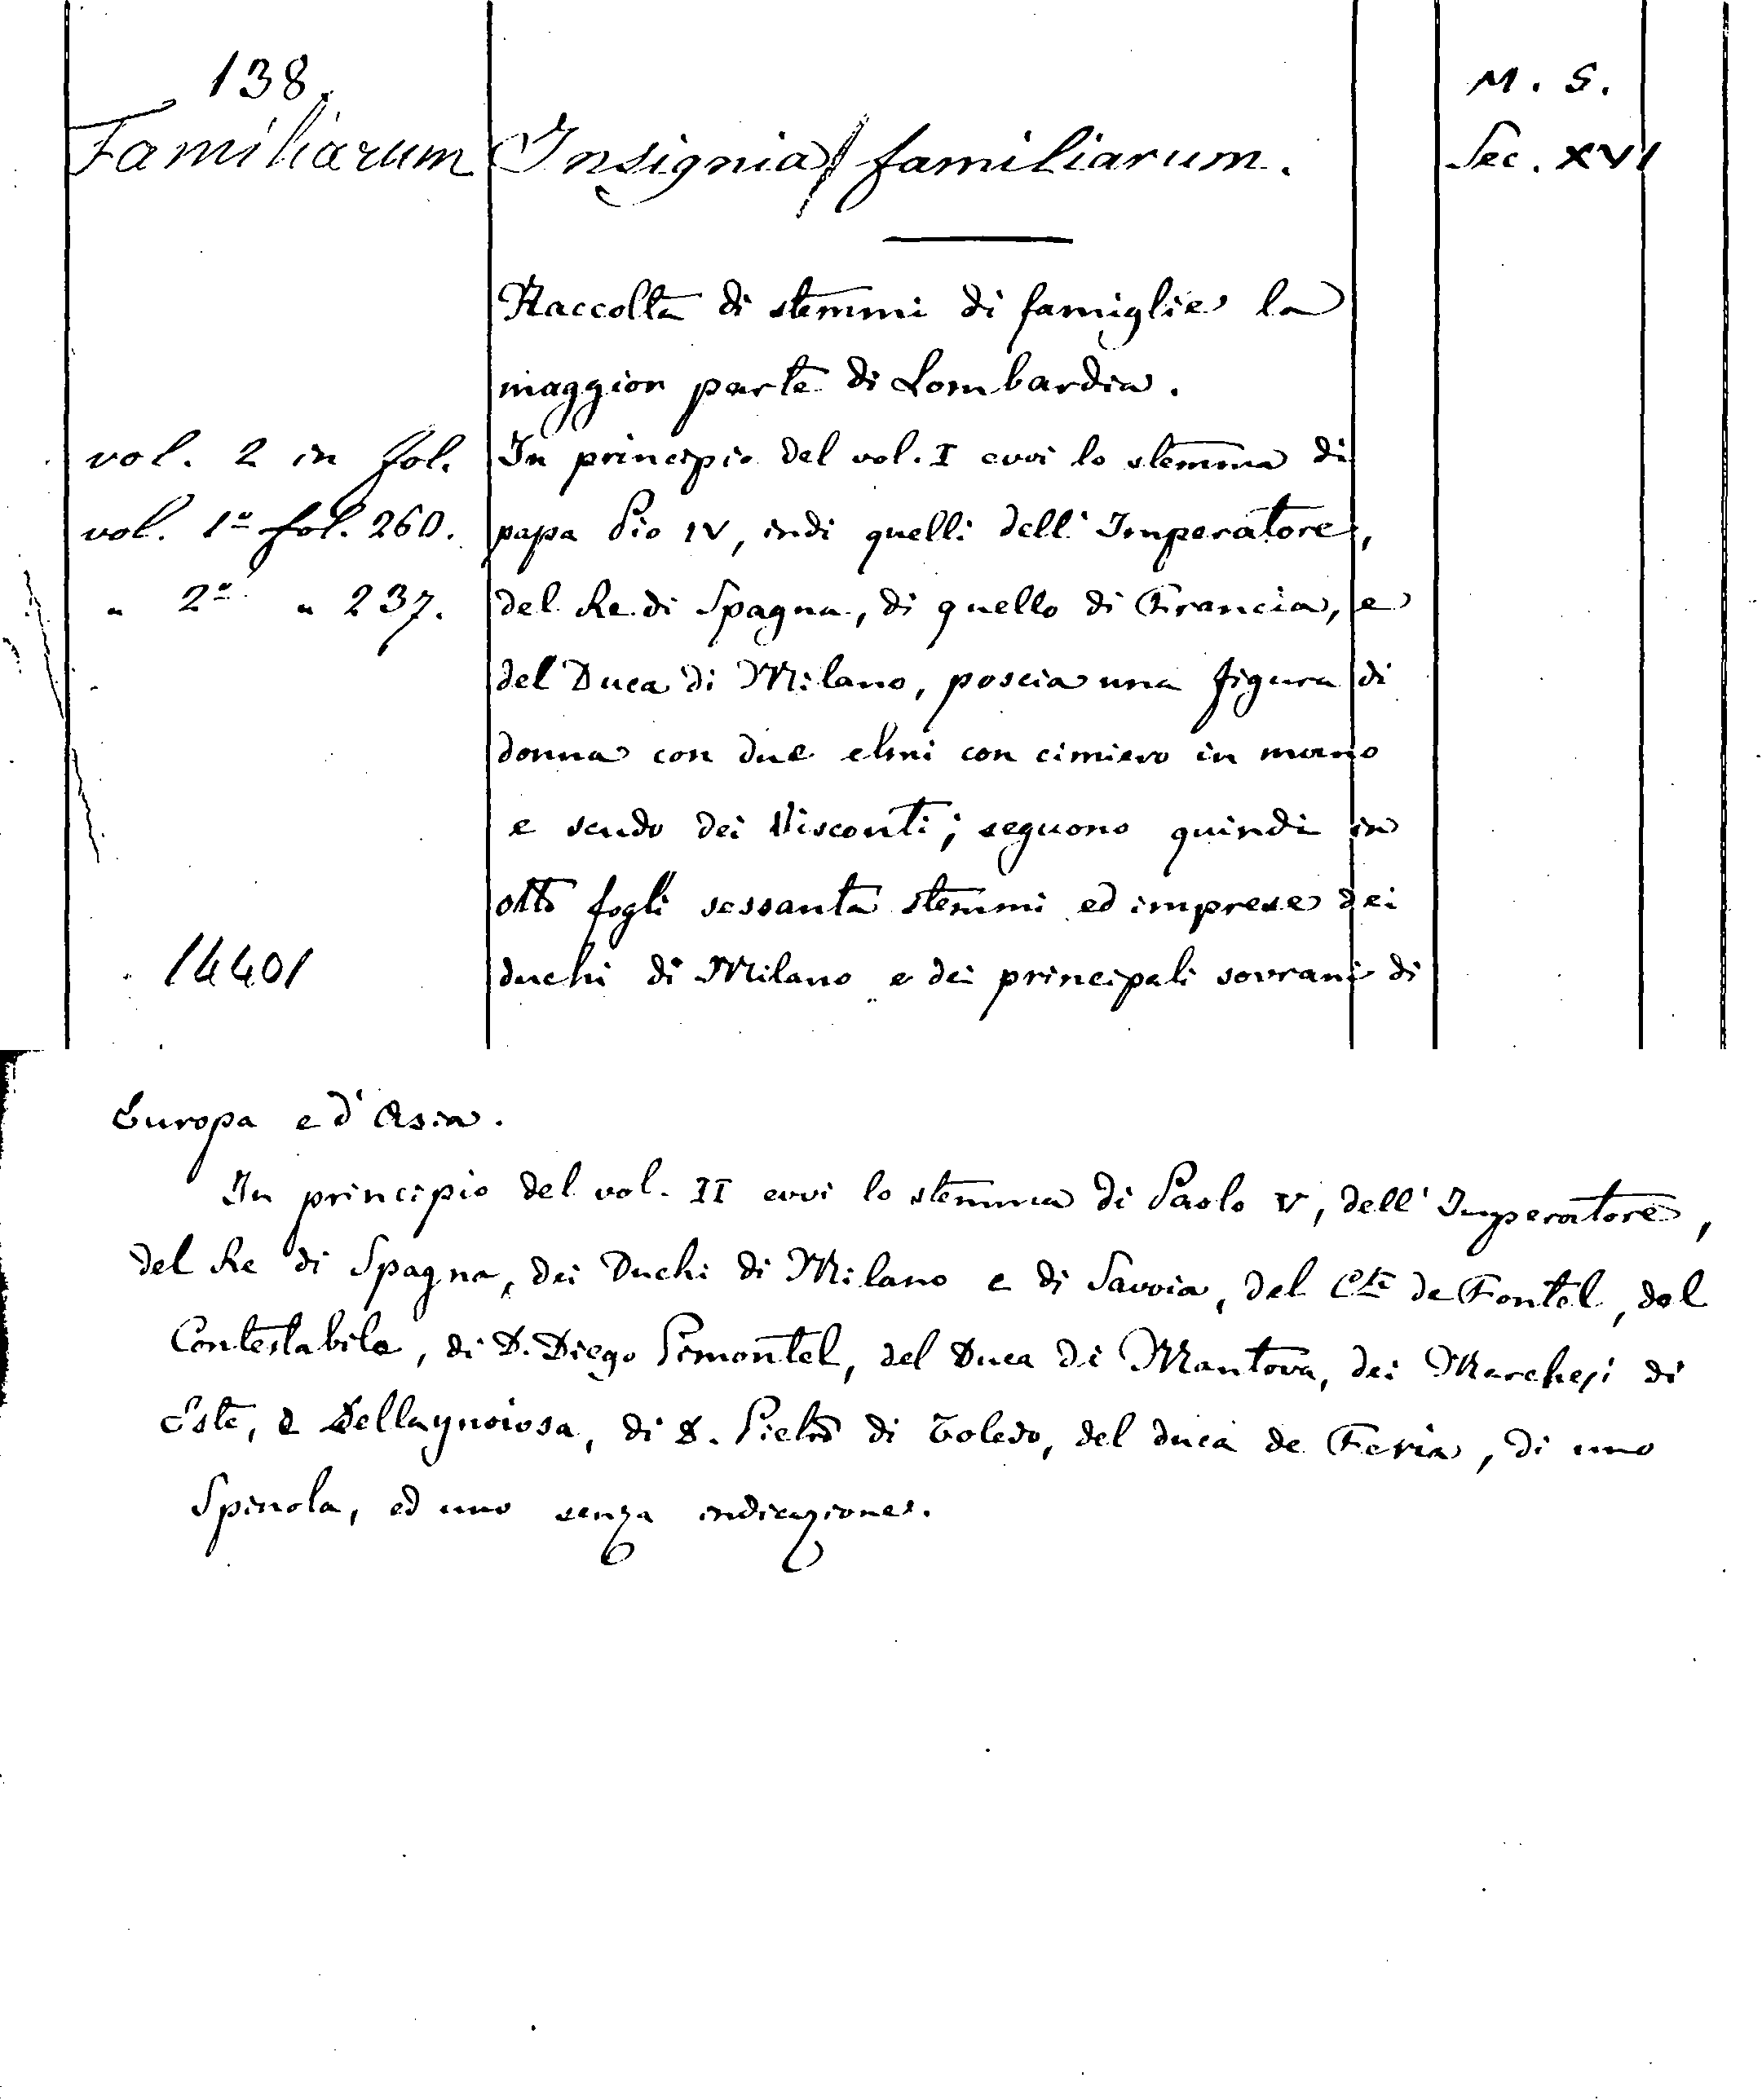 138.
M. S.
Familiarum
Insignia familiarum.
Sec. XVI
Raccolta di stemmi di famiglie la
maggior parte di Lombardia.
vol. 2 in fol.
In principio del vol. I evvi lo stemma di
vol. 1º fol. 260.
papa Pio IV, indi quelli dell' Imperatore,
" 2º " 237.
del Re di Spagna, di quello di Francia, e
del Duca di Milano, poscia una figura di
donna con due elmi con cimiero in mano
e scudo dei Visconti; seguono quindi in
otto fogli sessanta stemmi ed imprese dei
14401
duchi di Milano e dei principali sovrani di
Europa e d'Asia.
In principio del vol. II evvi lo stemma di Paolo V, dell' Imperatore,
del Re di Spagna, dei Duchi di Milano e di Savoia, del Cte de Fontel, del
Contestabile, di D. Diego Pimontel, del Duca di Mantova, dei Marchesi di
Este, e Dellaynoiosa, di D. Pietro di Toledo, del duca de Feria, di uno
Spinola, ed uno senza indicazione.